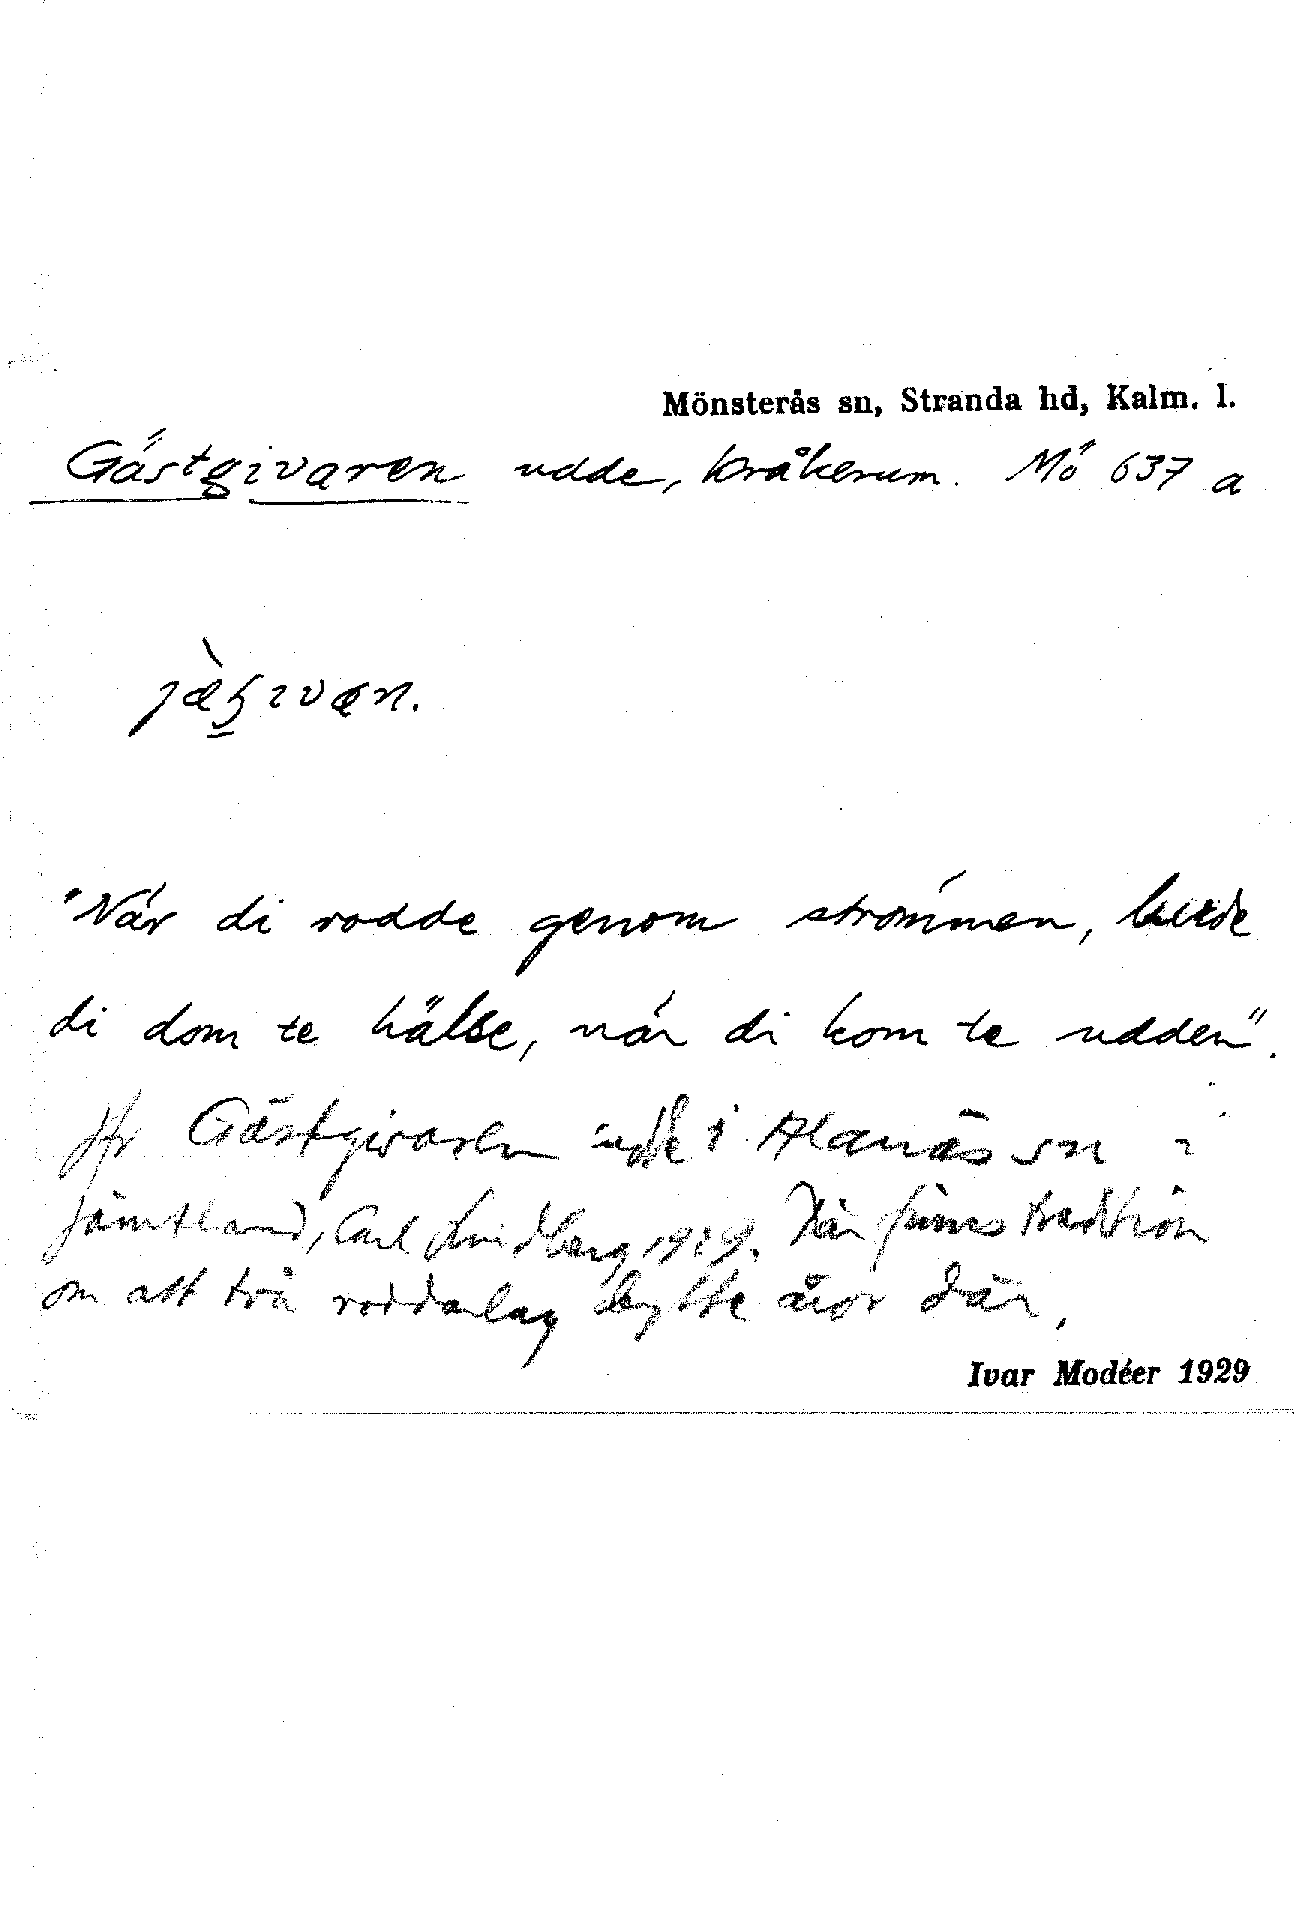 Mönsterås sn, Stranda hd, Kalm. l.
Gästgivaren udde, Kråkerum. Mö 637 a
"När di rodde genom strömmen,
di dom te hälse, när di kom te udden".
Jfr Gästgivaren udde i Alanäs sn i
Jämtland, Carl Lindberg 1929. Där finns tradition
om att två roddarlag bytte åror där.
Ivar Modéer 1929